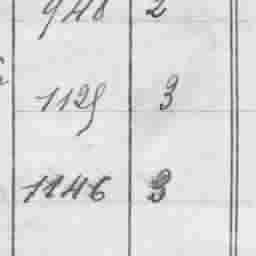 948 2
1125 3
1146 3